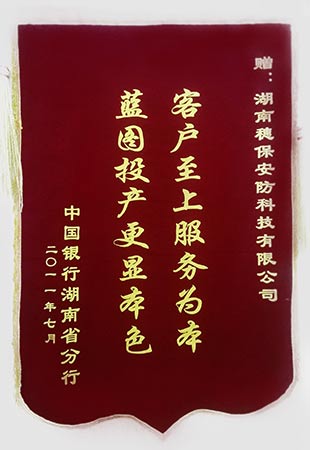 赠：湖南穗保安防科技有限公司
客户至上服务为本
蓝图投产更显本色
中国银行湖南省分行
二〇一一年七月